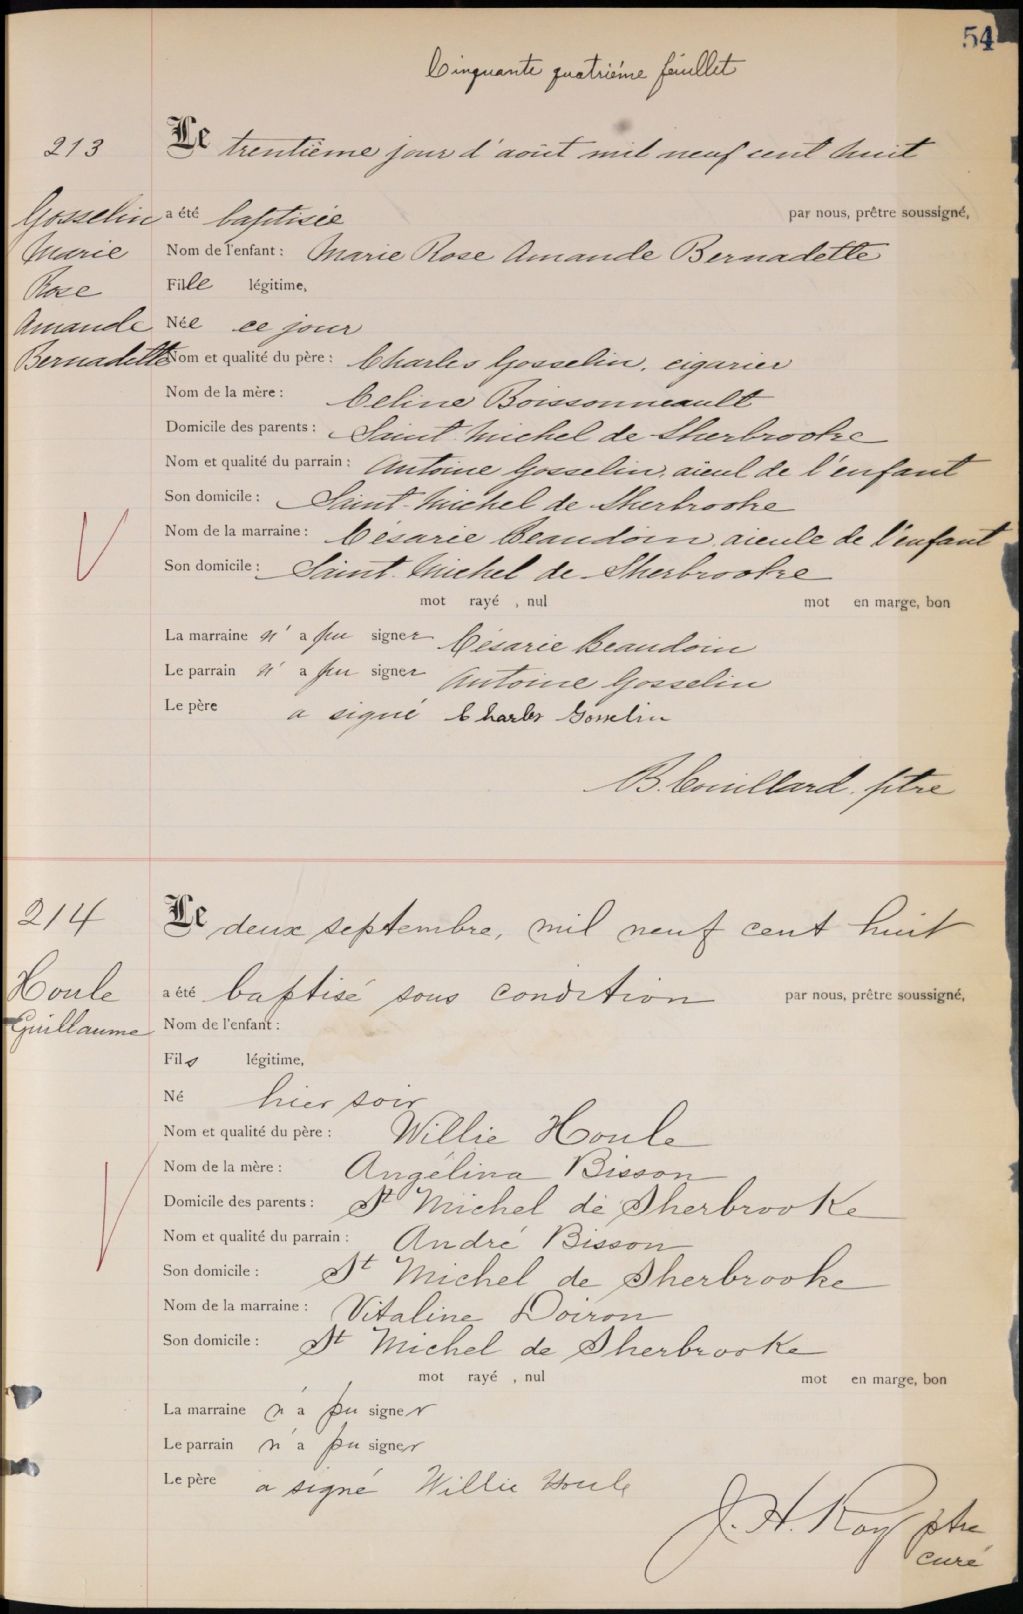 54
Cinquante quatriéme feuillet
213
Le trentième jour d'août mil neuf cent huit
Gosselin
Marie
Rose
Amande
Bernadette
a été baptisée par nous, prêtre soussigné,
Nom de l'enfant : Marie Rose Amande Bernadette
Fille légitime,
Née ce jour
Nom et qualité du père : Charles Gosselin, cigarier
Nom de la mère : Celine Boissonneault
Domicile des parents : Saint-Michel de Sherbrooke
Nom et qualité du parrain : Antoine Gosselin, aieul de l'enfant
Son domicile : Saint-Michel de Sherbrooke
Nom de la marraine : Césarie Beaudoin, aieule de l'enfant
Son domicile : Saint-Michel de Sherbrooke
mot rayé , nul mot en marge, bon
La marraine n'a pu signer Césarie Beaudoin
Le parrain n'a pu signer Antoine Gosselin
Le père a signé Charles Gosselin
B. Couillard. ptre
214
Le deux septembre, mil neuf cent huit
Houle
Guillaume
a été baptisé sous condition par nous, prêtre soussigné,
Nom de l'enfant :
Fils légitime,
Né hier soir
Nom et qualité du père : Willie Houle
Nom de la mère : Angélina Bisson
Domicile des parents : St Michel de Sherbrooke
Nom et qualité du parrain : André Bisson
Son domicile : St Michel de Sherbrooke
Nom de la marraine : Vitaline Doiron
Son domicile : St Michel de Sherbrooke
mot rayé , nul mot en marge, bon
La marraine n'a pu signer
Le parrain n'a pu signer
Le père a signé Willie Houle
J. H. Roy ptre
curé